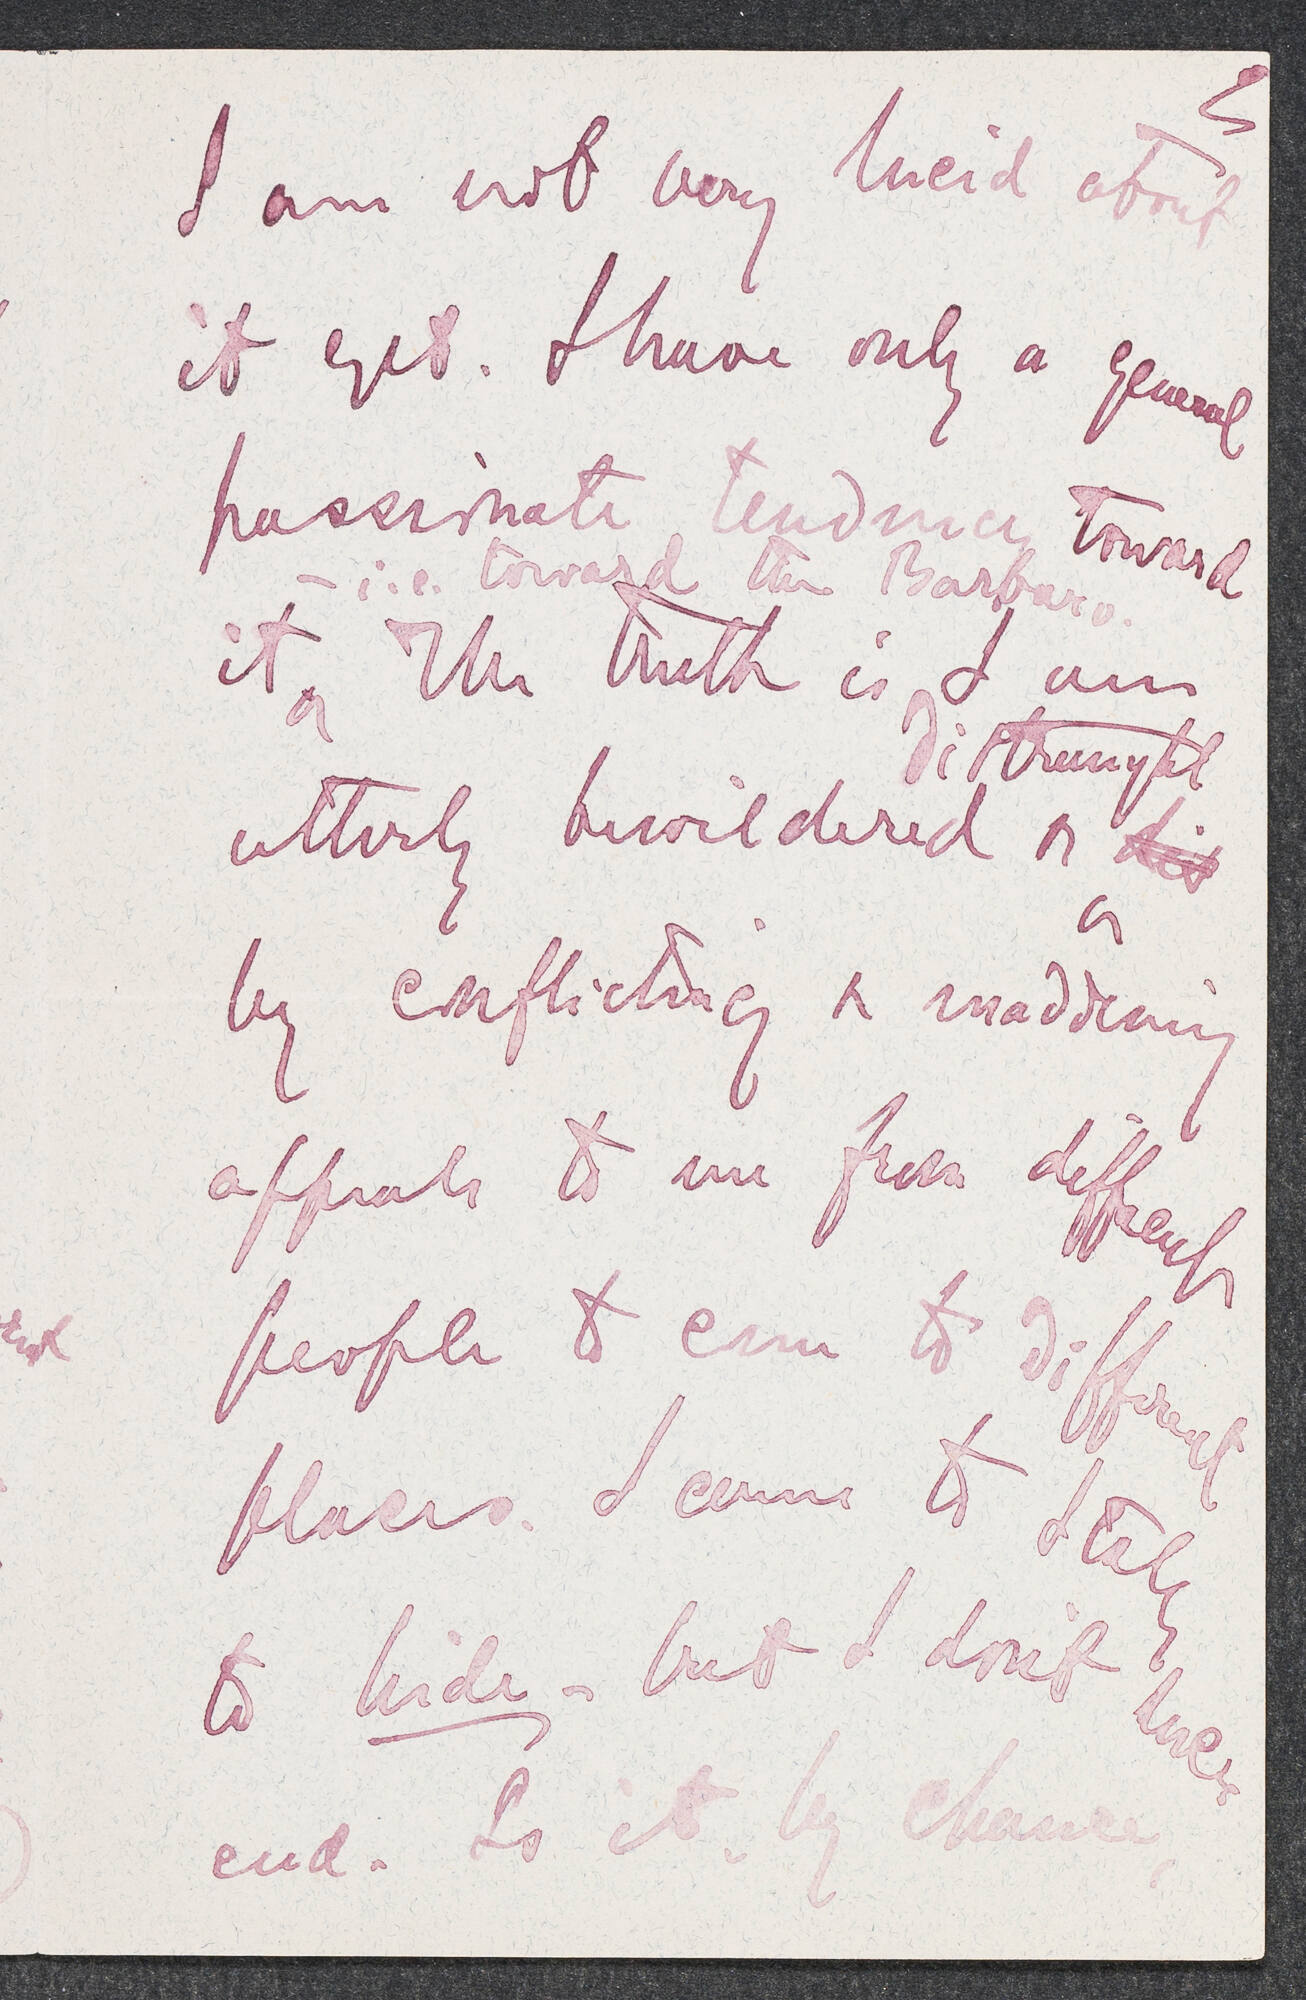 5
I am not very lucid about
it yet. I have only a general
passionate tendency toward
– i.e. toward the Barbaro.
it The truth is, I am
distraught
utterly bewildered & dis
by conflicting & maddening
appeals to me from different
people to come to different
places. I come to Italy
to hide – but I don't suc-
ceed. Is it, by chance,